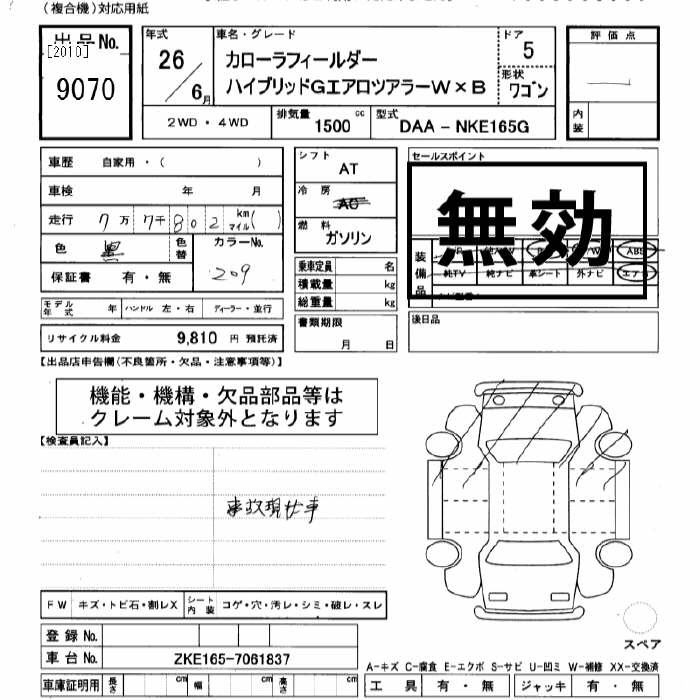 (複合機)対応用紙
出品No.
[2010]
9070
年式
26/6月
車名・グレード
カローラフィールダー
ハイブリッドGエアロツアラーW×B
ドア
5
形状
ワゴン
評価点
内装
2WD・4WD
排気量 1500 cc
型式 DAA-NKE165G
車歴 自家用・( )
車検 年 月
走行 7万7千802 km マイル( )
色 黒 色替
カラーNo.
209
保証書 有・無
モデル年式 年 ハンドル 左・右 ディーラー・並行
リサイクル料金 9,810 円 預託済
シフト
AT
冷房
AC
燃料
ガソリン
乗車定員 名
積載量 kg
総重量 kg
書類期限
月 日
セールスポイント
無効
装備品
ABS
純TV 純ナビ 革シート 外ナビ エアB
後日品
【出品店申告欄(不良箇所・欠品・注意事項等)】
機能・機構・欠品部品等は
クレーム対象外となります
【検査員記入】
事故現仕事
FW キズ・トビ石・割レX シート内装 コゲ・穴・汚レ・シミ・破レ・スレ
登録No.
車台No. ZKE165-7061837
車庫証明用 長さ cm 幅 cm 高さ cm
スペア
A-キズ C-腐食 E-エクボ S-サビ U-凹ミ W-補修 XX-交換済
工具 有・無 ジャッキ 有・無